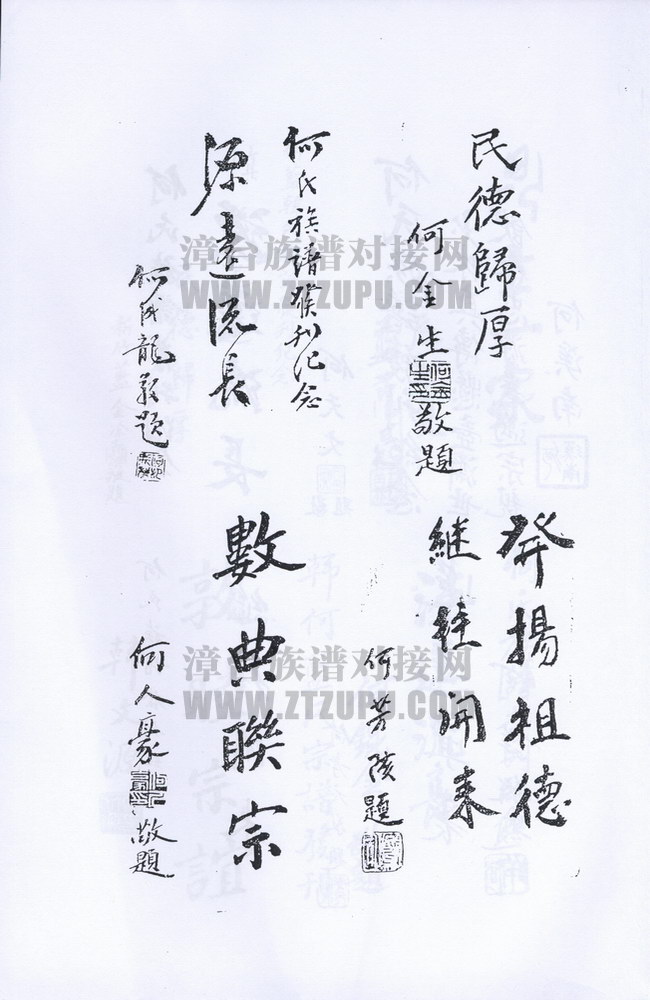 民德歸厚
何金生敬題
何氏族譜發刊紀念
源遠流長
何氏龍敬題
發揚祖德
継往開来
何芳陔題
數典聯宗
何人豪敬題
漳台族谱对接网
WWW.ZTZUPU.COM
漳台族谱对接网
WWW.ZTZUPU.COM